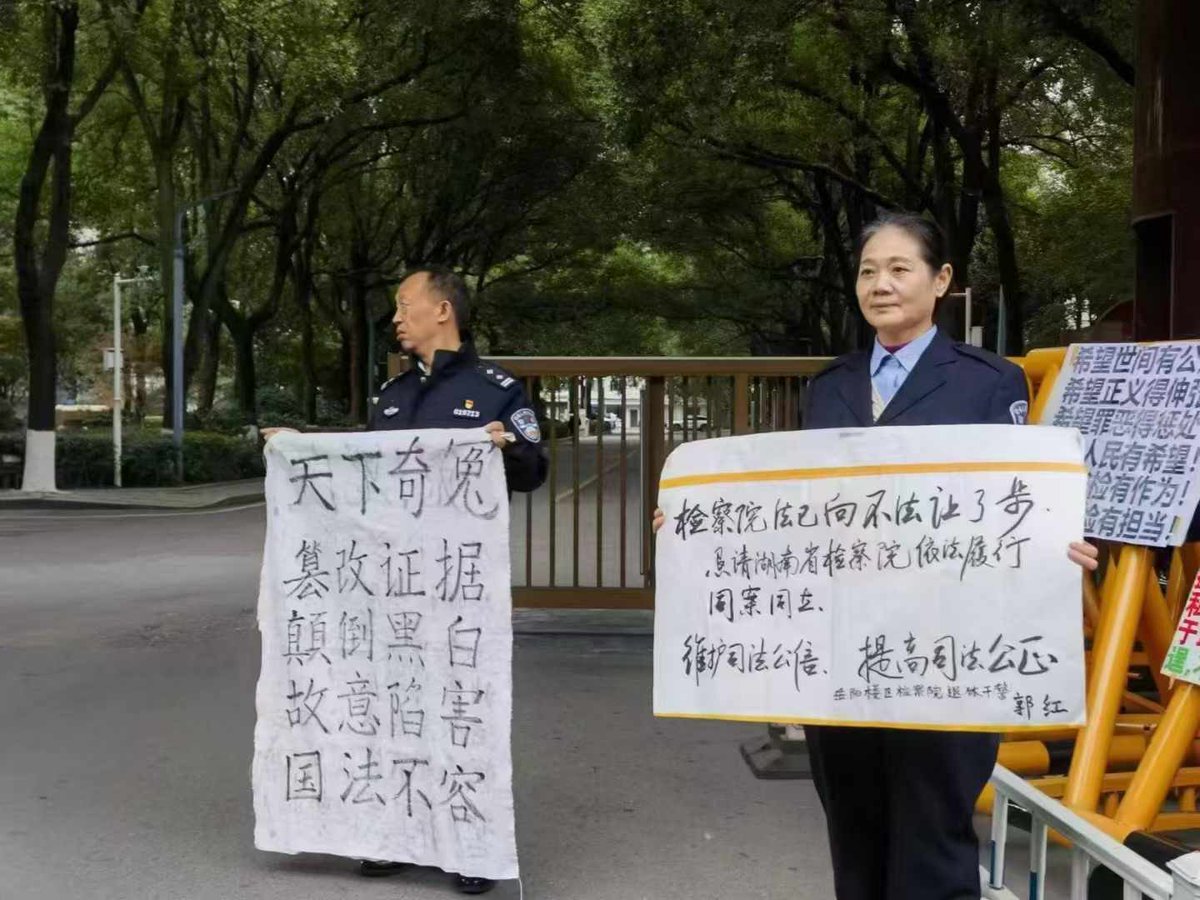 天下奇冤
篡改证据
颠倒黑白
故意陷害
国法不容
检察院法已向不法让了步.
恳请湖南省检察院依法履行
同案同立、
维护司法公信、提高司法公正
岳阳楼区检察院退休干警
郭红
希望世间有公
希望正义得伸
希望罪恶得惩处
人民有希望!
检有作为!
检有担当!